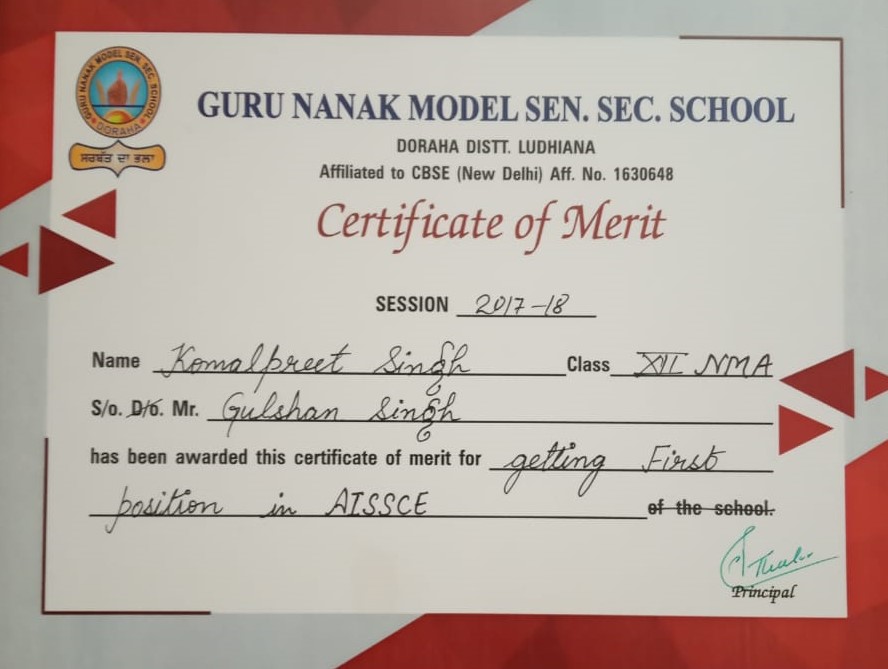 GURU NANAK MODEL SEN. SEC. SCHOOL
DORAHA
ਸਰਬੱਤ ਦਾ ਭਲਾ
GURU NANAK MODEL SEN. SEC. SCHOOL
DORAHA DISTT. LUDHIANA
Affiliated to CBSE (New Delhi) Aff. No. 1630648
Certificate of Merit
SESSION 2017-18
Name Komalpreet Singh Class XII NMA
S/o. D/o. Mr. Gulshan Singh
has been awarded this certificate of merit for getting First
position in AISSCE of the school.
Principal